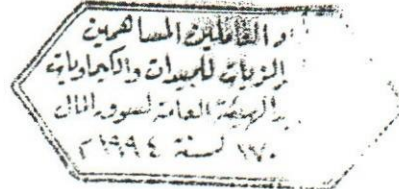 و العاملين المساهمين
الزيات للمبيدات والكيماويات
بالهيئة العامة لسوق المال
١٧٠ لسنة ١٩٩٤ م